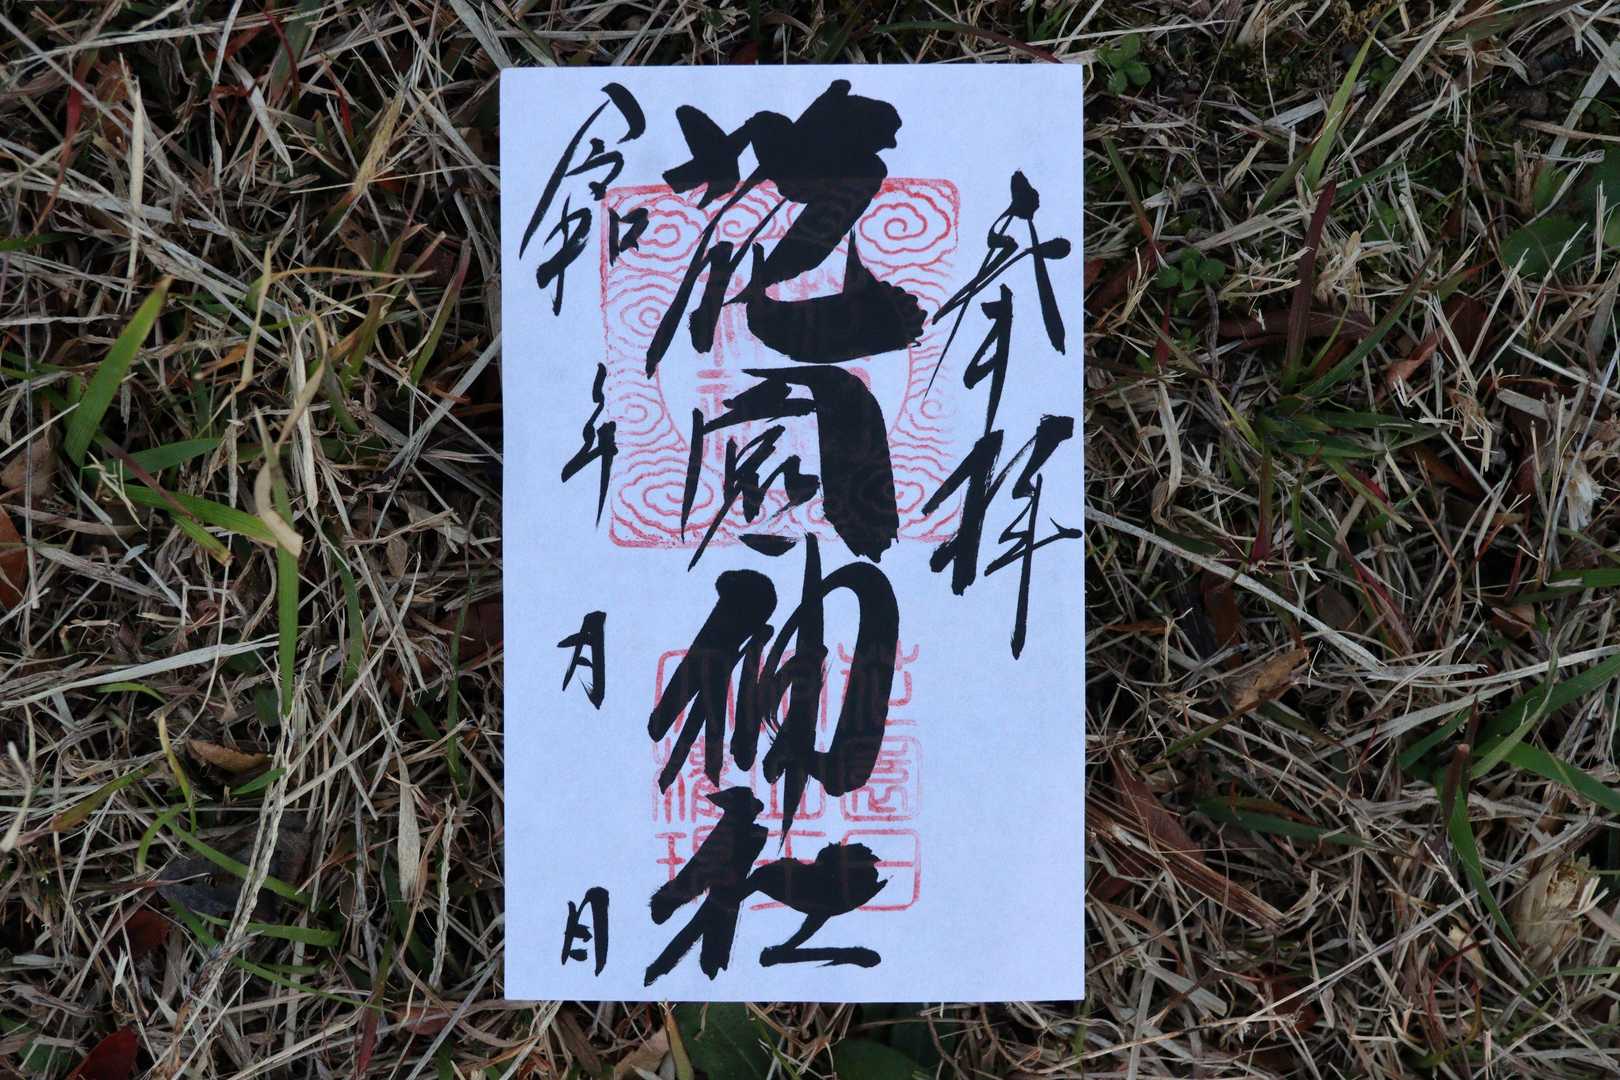 奉拝
花園神社
令和　年　月　日